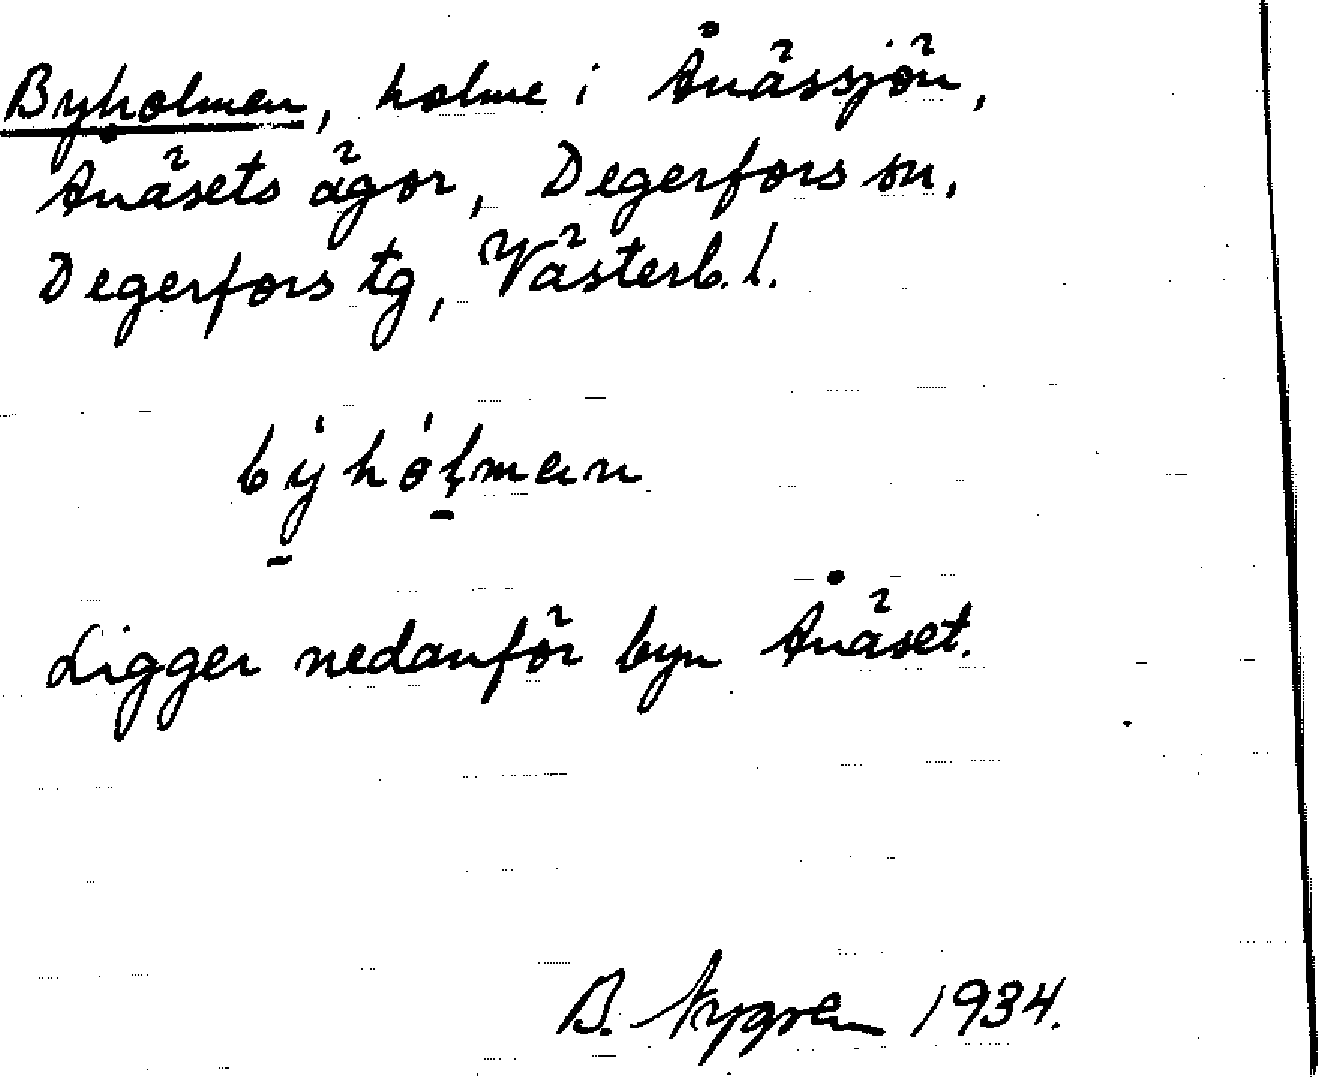 Byholmen, holme i Ånässjön,
Ånäsets ägor, Degerfors sn,
Degerfors tg, Västerb. l.
býhólman
Ligger nedanför byn Ånäset.
B. Nygren 1934.